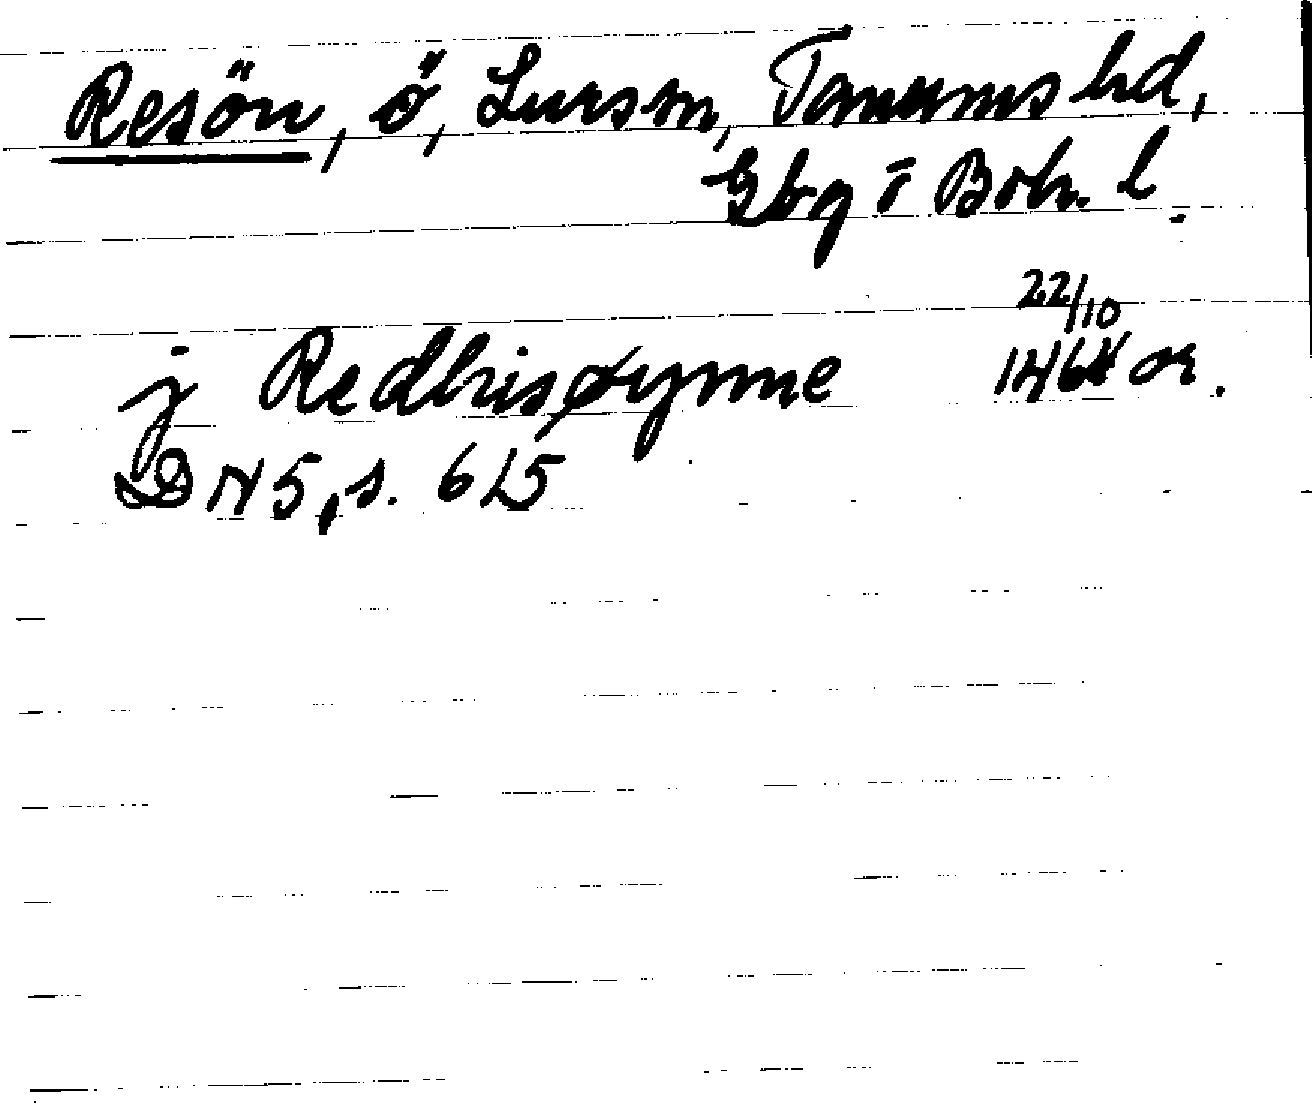 Resön, ö, Lurs sn, Tanums hd,
Gbg o Boh. l.
j Redhisøynne 22/10 1464 or.
DN 5, s. 615